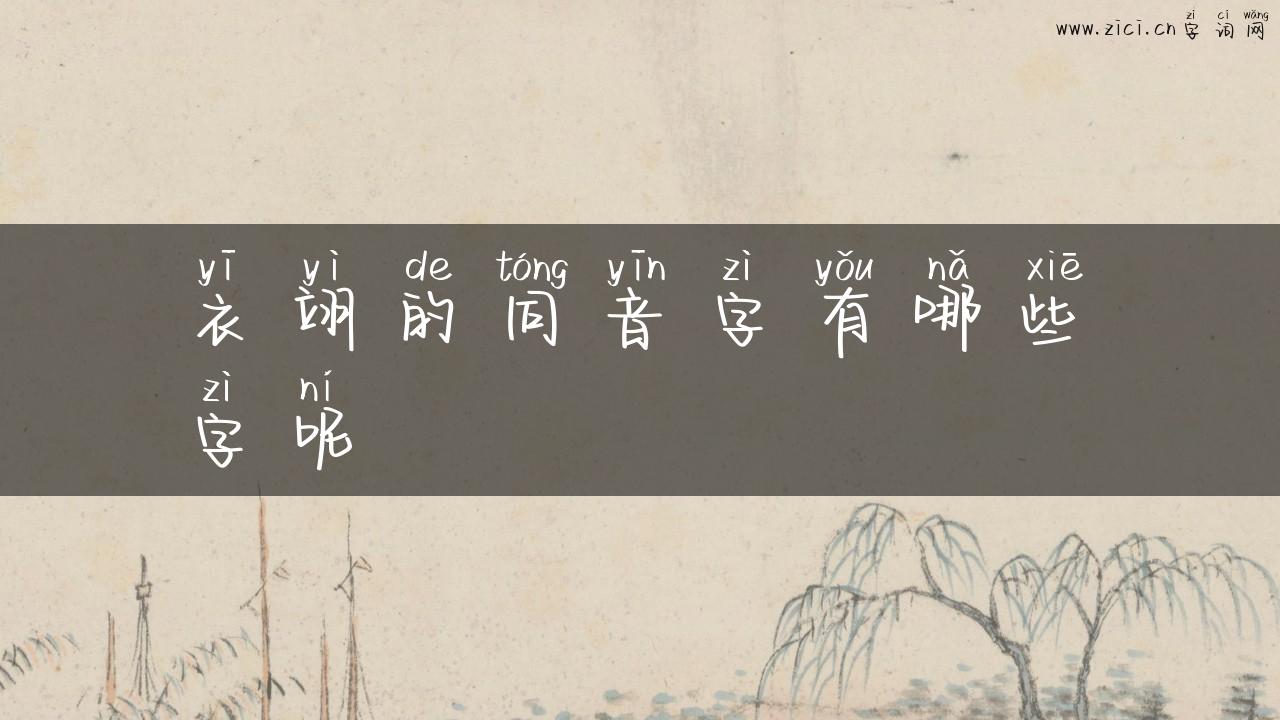 zì cí wǎng
www.zici.cn 字词网
yī yì de tóng yīn zì yǒu nǎ xiē
衣翊的同音字有哪些
zì ní
字呢